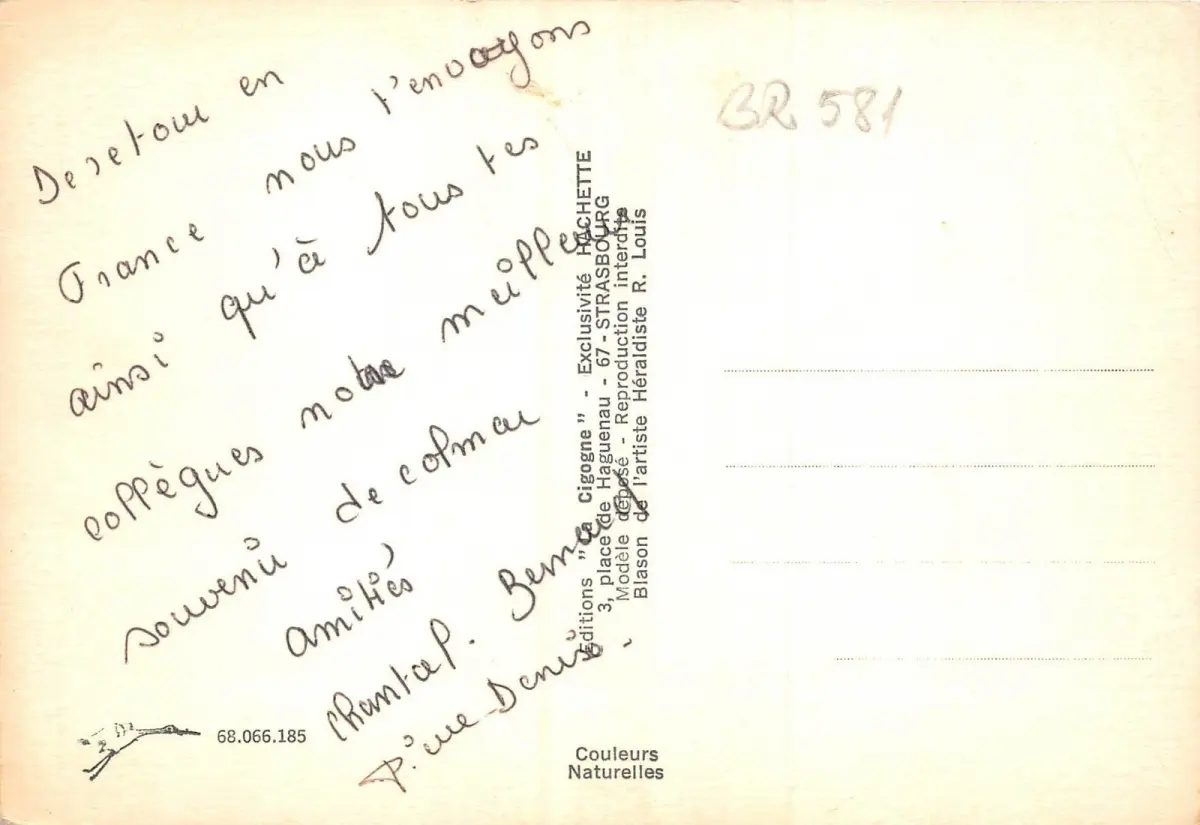 De retour en
France nous t'envoyons
ainsi qu'à tous tes
collègues notre meilleur
souvenir de colmar
amitiés
chantal. Bernard
Denis.
BR 581
Editions "La Cigogne" - Exclusivité HACHETTE
3, place de Haguenau - 67 - STRASBOURG
Modèle déposé - Reproduction interdite
Blason de l'artiste Héraldiste R. Louis
68.066.185
Couleurs
Naturelles